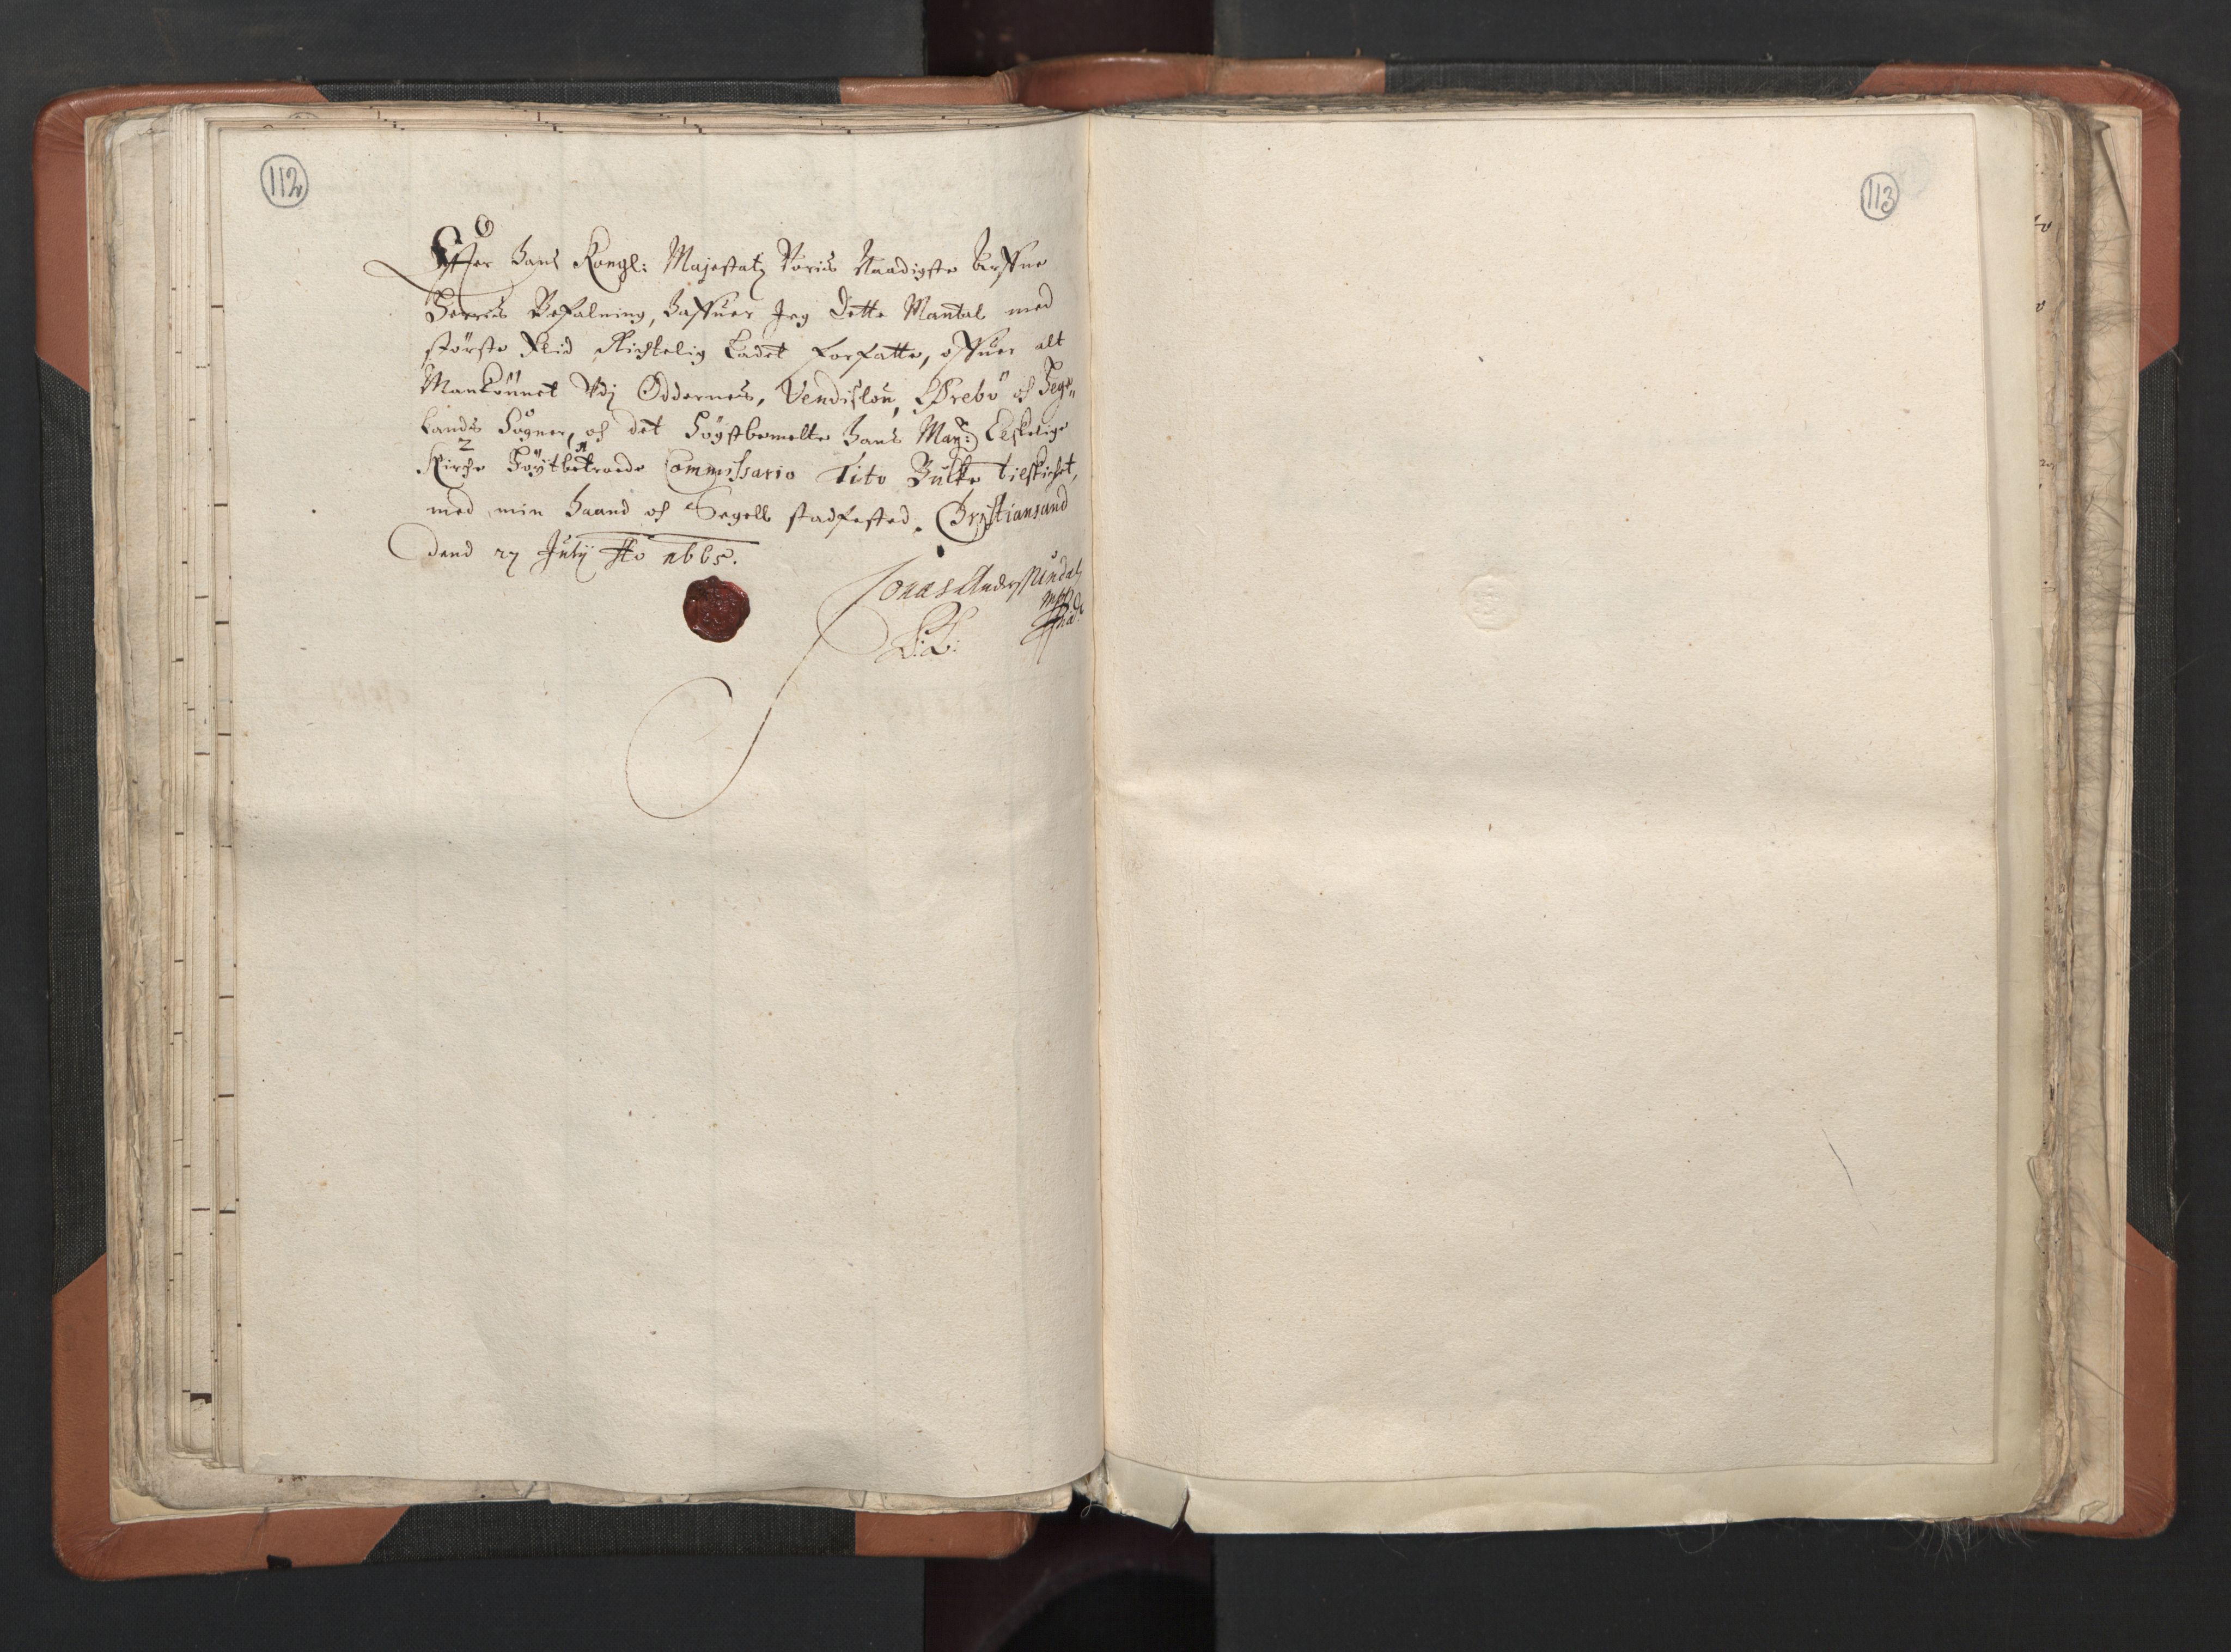 112
Effter Hans Kongl: Majestatz Voris Naadigste Arffue
Herris Befalning, Haffuer Jeg dette Mantal med
störste Flid Richtelig Ladet forfatte, offuer alt
Mankönnet Vdj Oddernes, Vendislou, Ørebö och Hege„
Lands Sogner, och det Höystbemelte Hans May: Elskelige
2 1
Kirche Höytbetroede Commissario Tito Bulke tilskichet,
med min Haand och Segell stadfested. Christiansand
dend 27 July Ao 1665.
Jonas Anders
L: S:
113